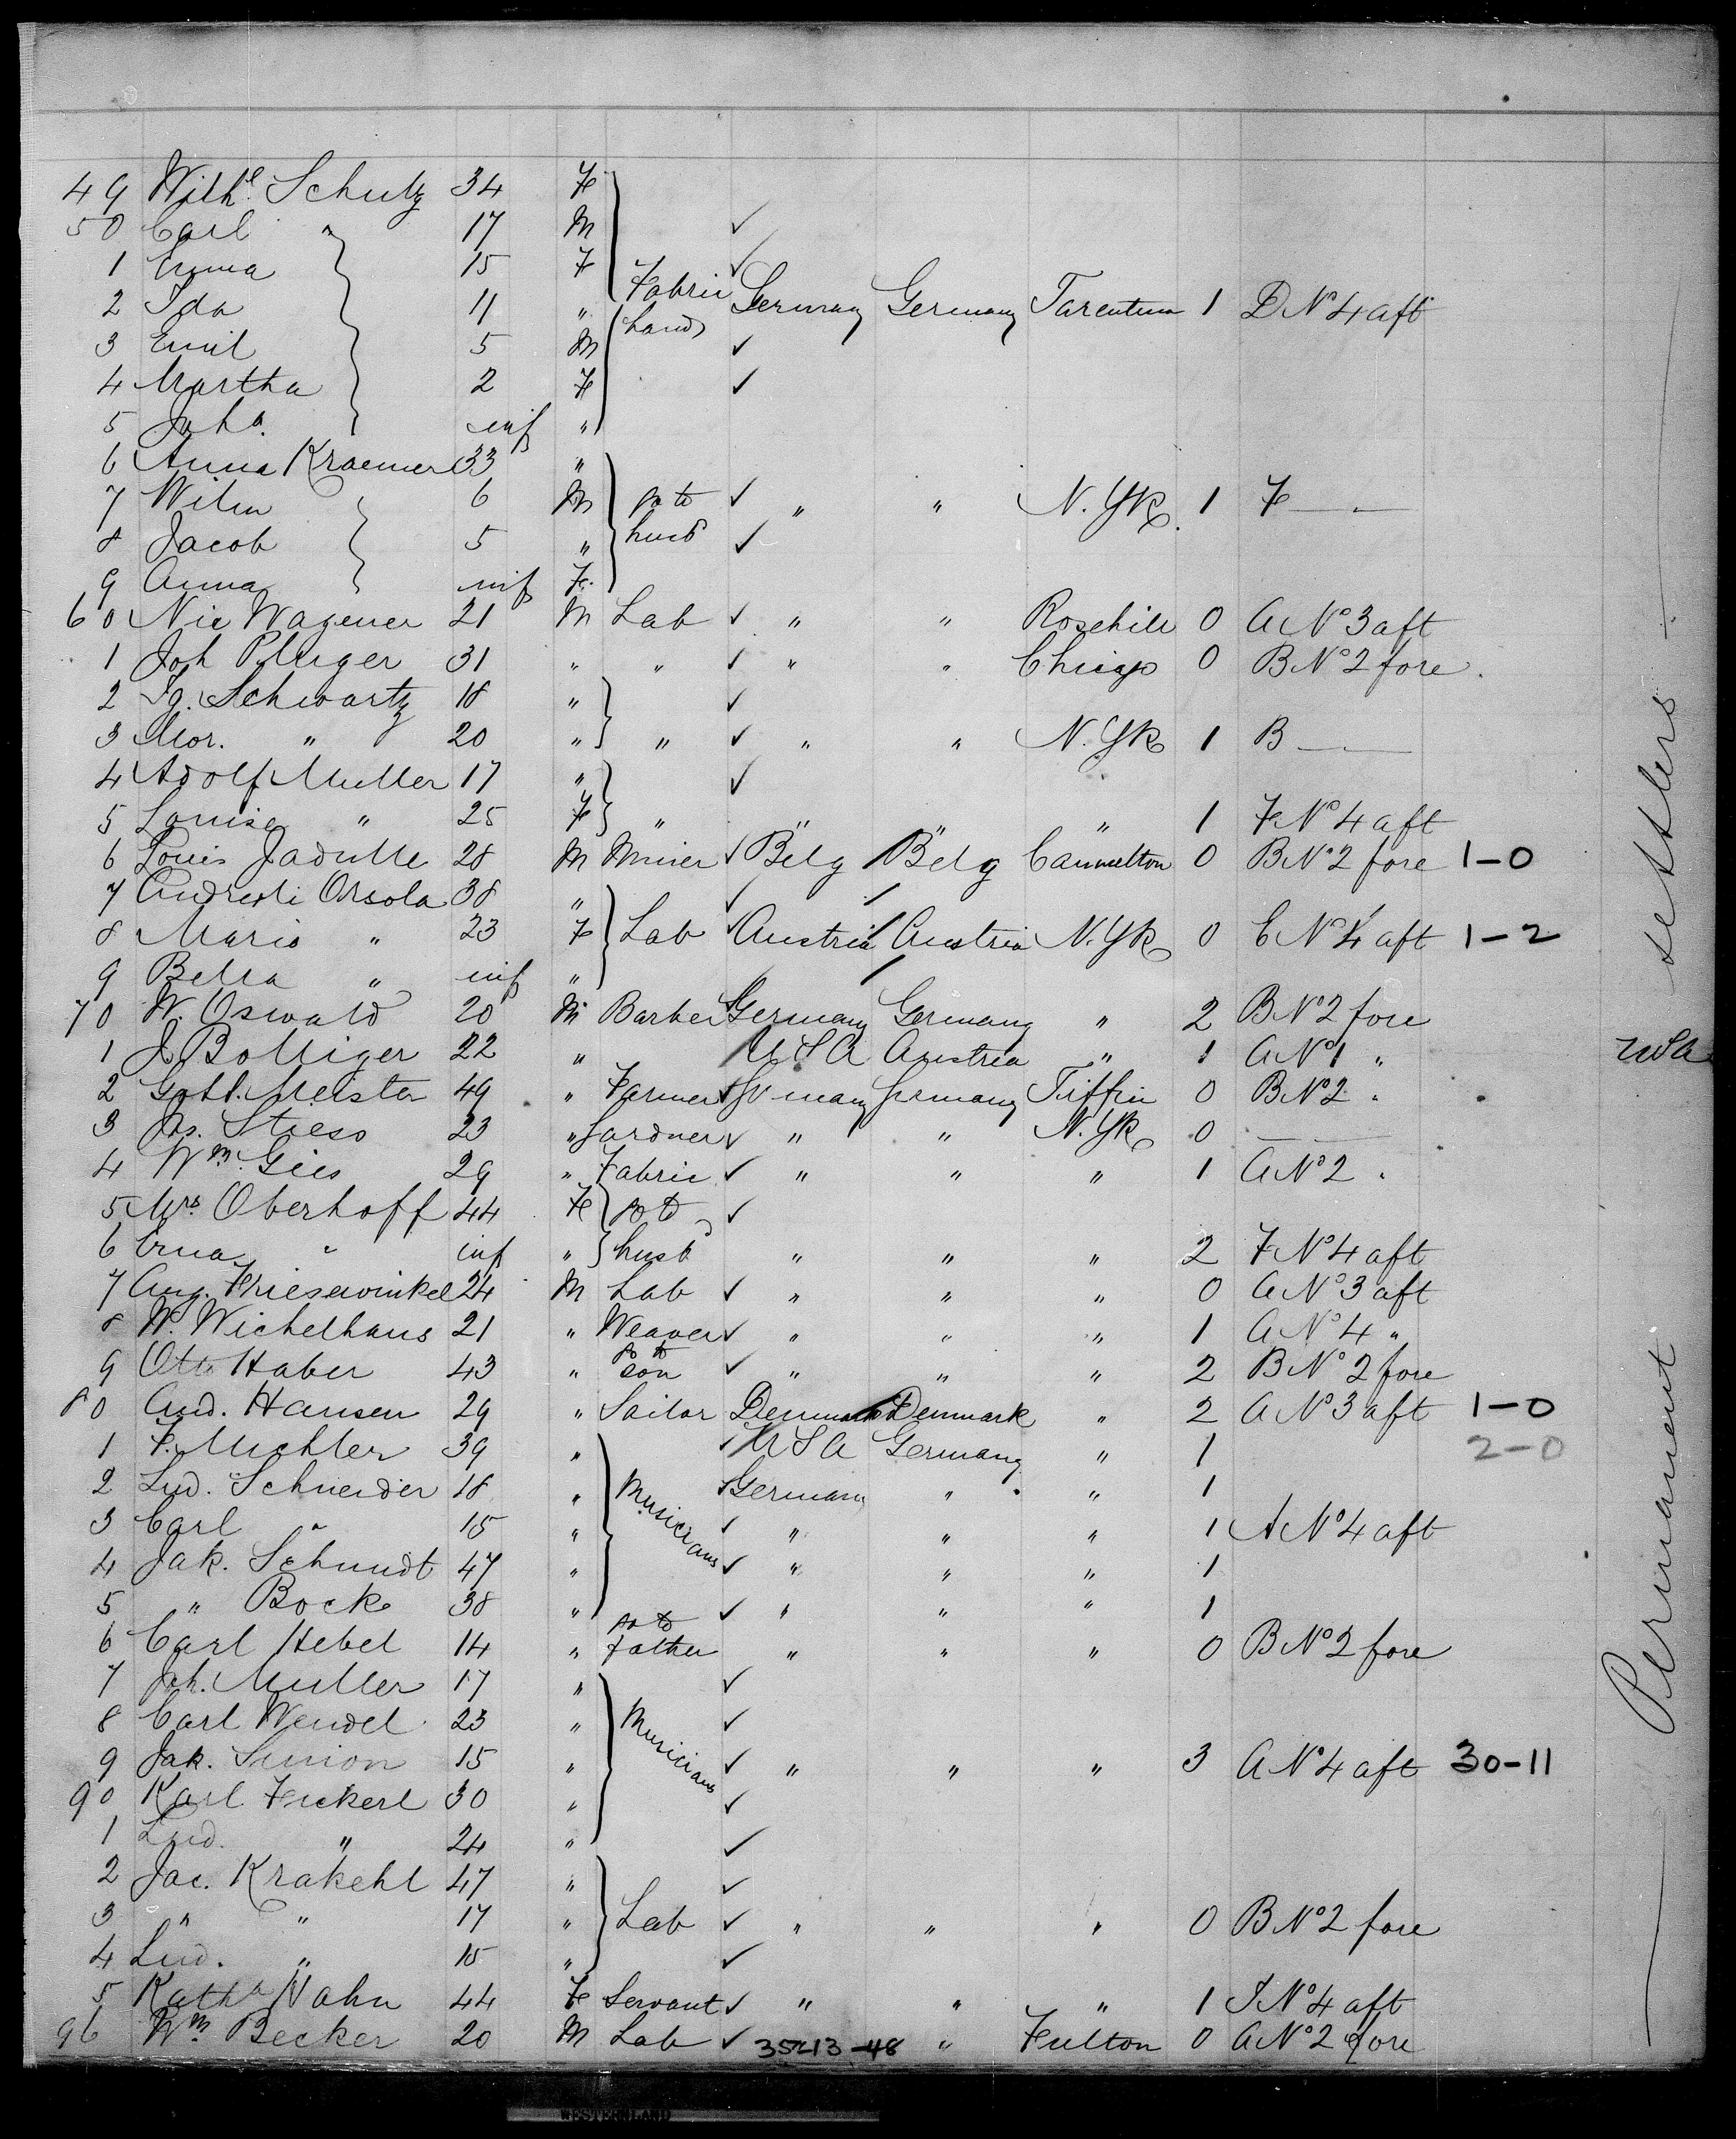 49 Wilh.e Schutz 34 F
50 Carl " 17 M ✓
1 Emma 15 F ✓
2 Ida 11 " Fabric hand Germany Germany Tarentum 1 D No 4 aft
3 Emil 5 M ✓
4 Martha 2 F ✓
5 Joha. inf "
6 Anna Kraemer 33 "
7 Wilm 6 M go to husbd ✓ " " N. Yk. 1 F —
8 Jacob 5 " ✓
9 Anna inf F.
60 Nic Wagener 21 M Lab ✓ " " Rosehill 0 A No 3 aft
1 Joh Pfluger 31 " " ✓ " " Chicago 0 B No 2 fore.
2 Ig. Schwartz 18 " ✓
3 Mor. " 20 " " ✓ " " N. Yk 1 B —
4 Adolf Muller 17 " ✓
5 Louise " 25 F " " " " 1 F No 4 aft
6 Louis Jadulle 28 M Miner ✓ Belg Belg Cannelton 0 B No 2 fore 1-0
7 Orsola 38 " ✓
8 Maria " 23 F Lab ✓ Austria Austria N. Yk 0 C No 4 aft 1-2
9 Bella " inf "
70 W. Oswald 20 M Barber Germany Germany " 2 B No 2 fore
1 J Bolliger 22 " USA Austria " 1 A No 1 " USA
2 Gottl. Meister 49 " Farmer Germany Germany Tiffin 0 B No 2 "
3 Jos. Stress 23 " Gardner ✓ " " N. Yk 0 —
4 Wm. Gies 29 " Fabric ✓ " " " 1 A No 2 "
5 Mrs. Oberhoff 44 F go to husbd ✓
6 Erna " inf " " " " 2 F No 4 aft
7 Aug. Friesewinkel 24 M Lab ✓ " " " 0 A No 3 aft
8 W. Wichelhaus 21 " Weaver ✓ " " " 1 A No 4 "
9 Otto Haber 43 " go to son ✓ " " " 2 B No 2 fore
80 And. Hansen 29 " Sailor Denmark Denmark " 2 A No 3 aft 1-0
1 F. Michler 39 " ✓ USA Germany " 1 2-0
2 Lud. Schneider 18 " Musicians Germany " " 1
3 Carl " 15 " ✓ " " " 1 A No 4 aft
4 Jak. Schmidt 47 " ✓ " " " 1
5 " Bock 38 " ✓ " " " 1
6 Carl Hebel 14 " go to father " " " 0 B No 2 fore
7 Joh. Muller 17 " ✓
8 Carl Wendel 23 " Musicians ✓
9 Jak. Simon 15 " ✓ " " " 3 A No 4 aft 30-11
90 Karl Fickert 30 " ✓
1 Lud. " 24 " ✓
2 Jac. Krakehl 47 " ✓
3 " " 17 " Lab ✓ " " " 0 B No 2 fore
4 Lud. " 15 " ✓
5 Katha Hahn 44 F Servant ✓ " " " 1 I No 4 aft
96 Wm Becker 20 M Lab ✓ 35213-48 " Fulton 0 A No 2 fore
Permanent settlers
WESTERNLAND